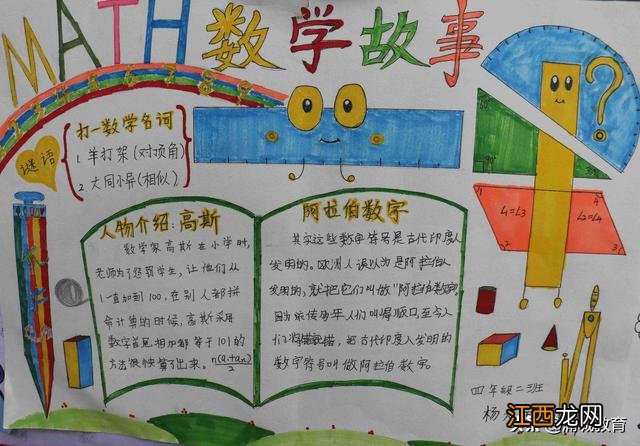 MATH 数学故事
谜语
打一数学名词
1. 羊打架(对顶角)
2. 大同小异(相似)
人物介绍:高斯
数学家高斯在小学时,
老师为了惩罚学生,让他们从
1一直加到100,在别人都拼
命计算的时候,高斯采用
数字首尾相加都等于101的
方法很快算了出来。
阿拉伯数字
其实这些数字符号是古代印度人
发明的。欧洲人误以为是阿拉伯人
发明的,就把它们叫做"阿拉伯数字"
因为流传多年人们叫得顺口至今人
们 把古代印度人发明的
数字符号叫做阿拉伯数字。
?
1
4
2
3
∠1=∠3
∠2=∠4
四年级二班
杨
江西龙网
www.jxlongw.com
教育